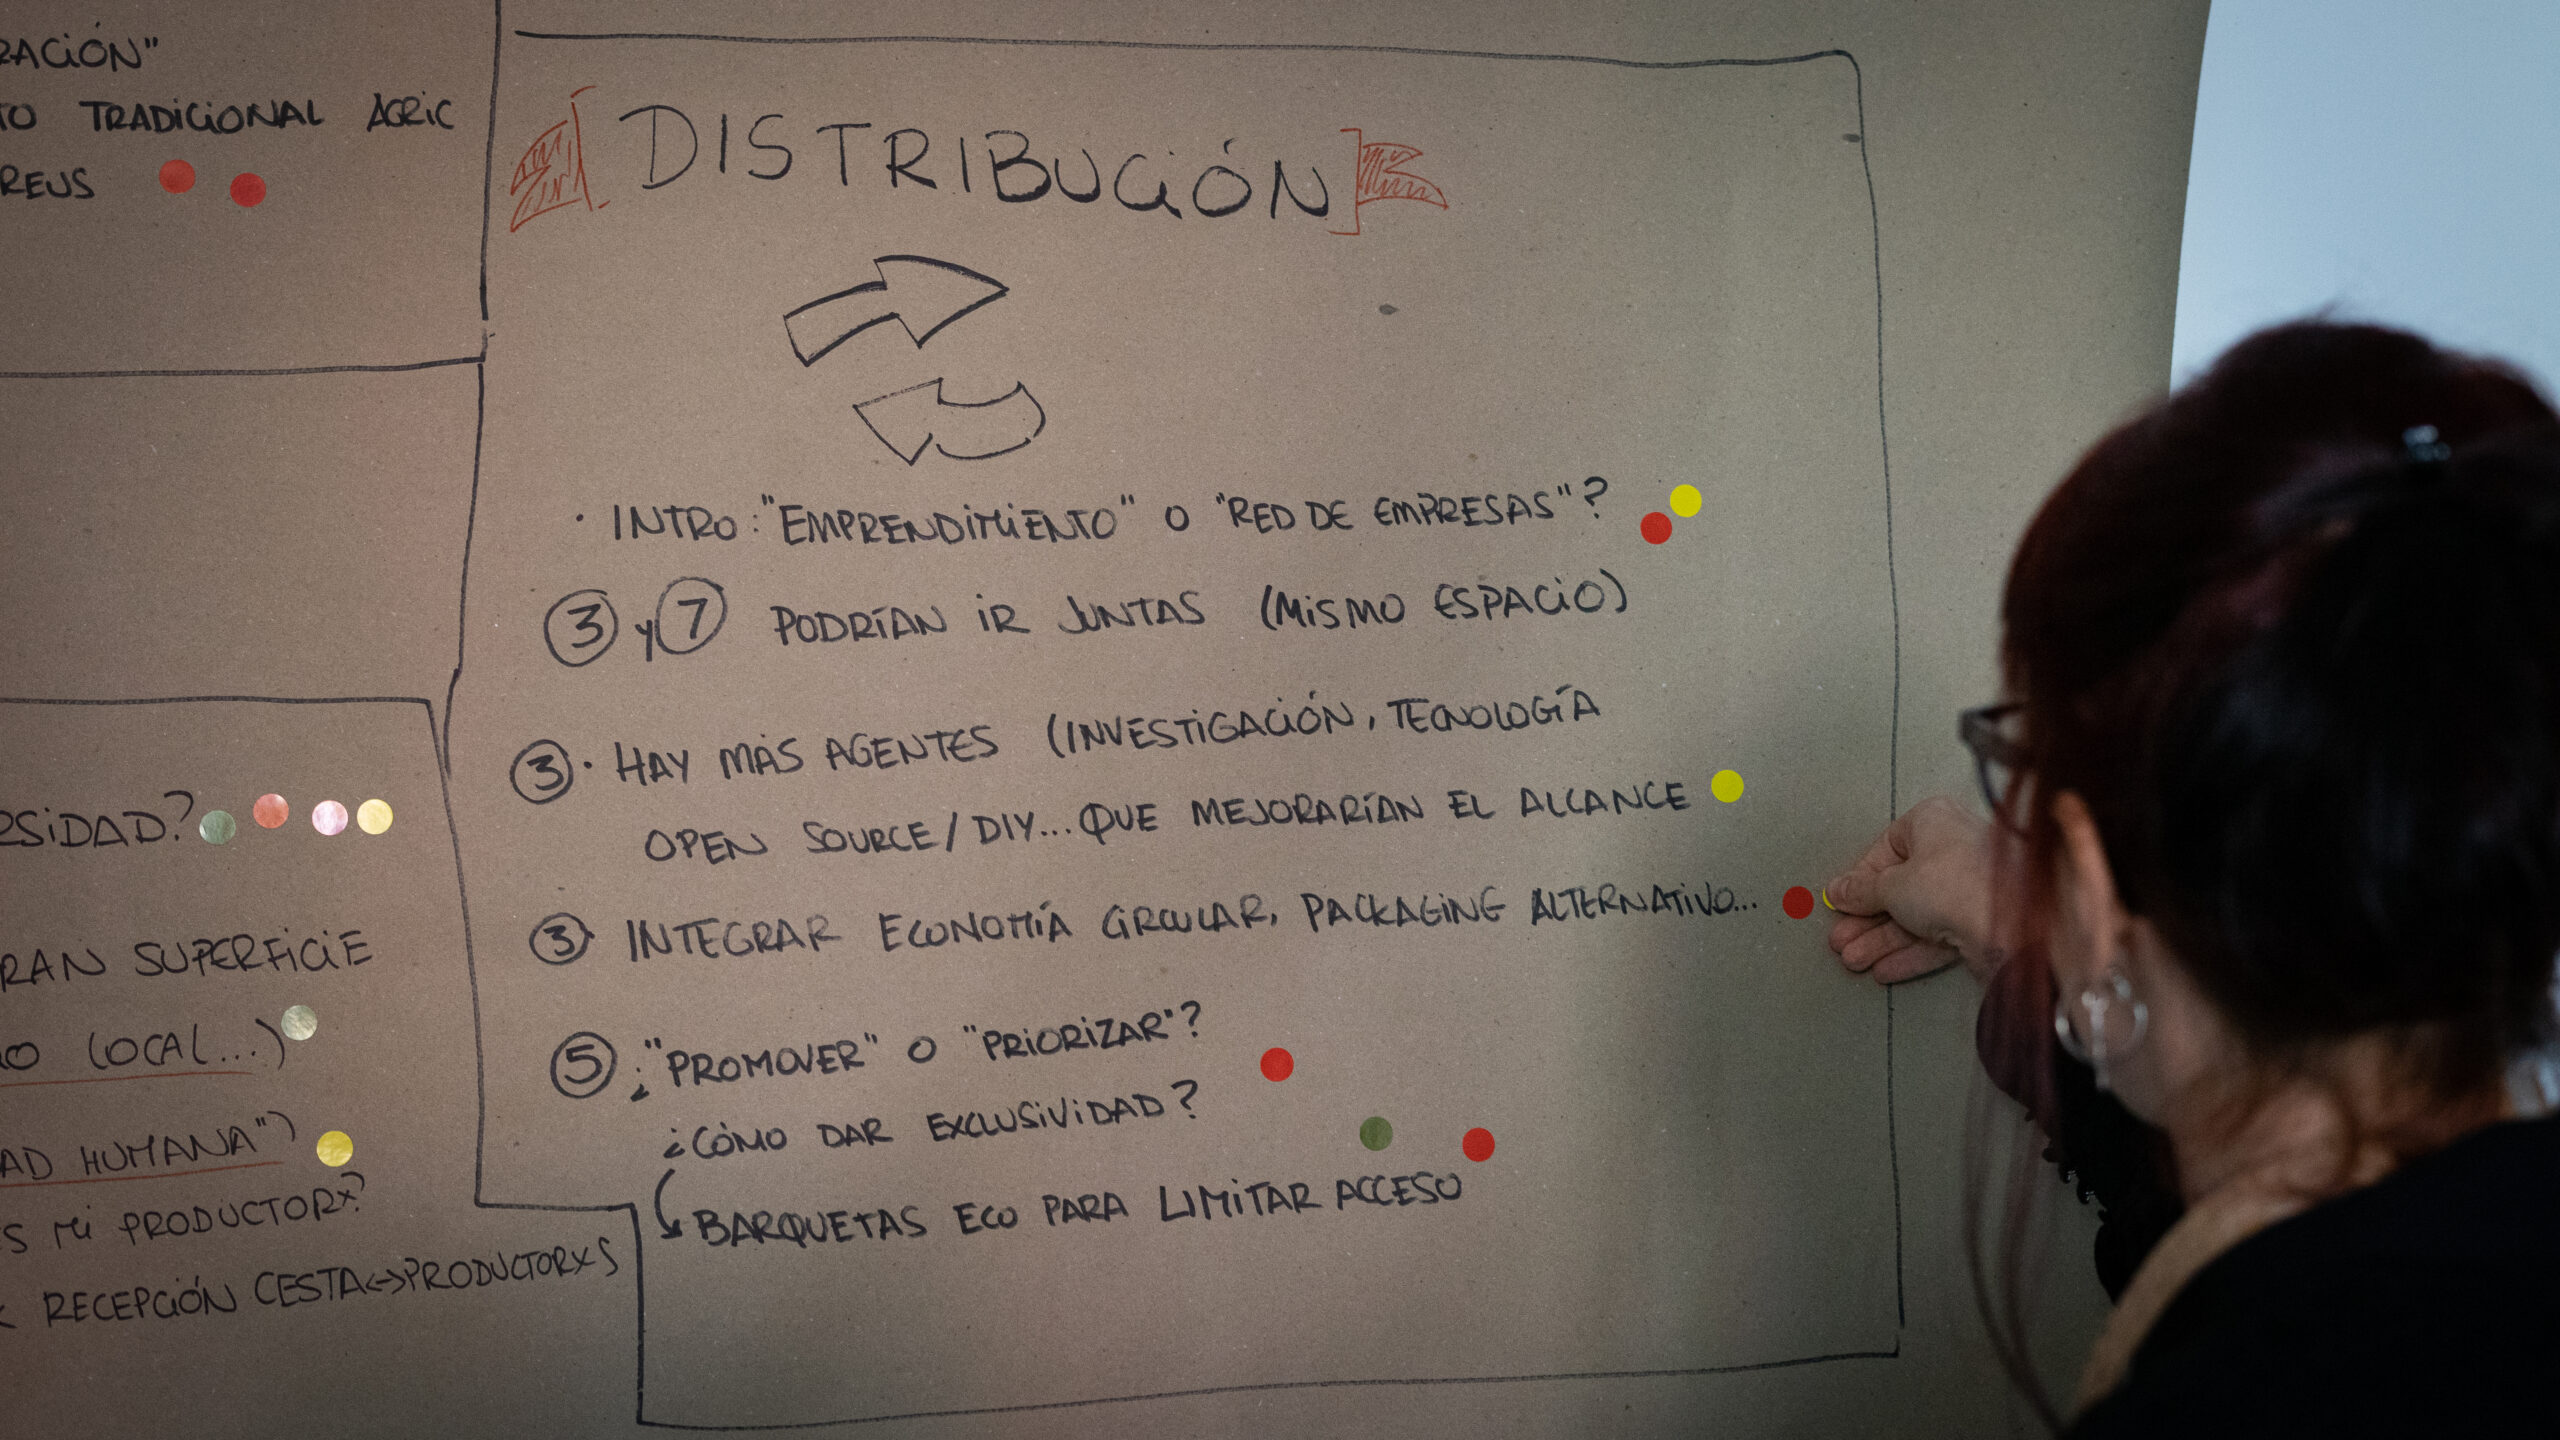 RACIÓN"
TO TRADICIONAL AGRIC
REUS
DISTRIBUCIÓN
· INTRO: "EMPRENDIMIENTO" O "RED DE EMPRESAS"?
3 y 7 PODRÍAN IR JUNTAS (MISMO ESPACIO)
3 · HAY MÁS AGENTES (INVESTIGACIÓN, TECNOLOGÍA
OPEN SOURCE/DIY... QUE MEJORARÍAN EL ALCANCE
3 · INTEGRAR ECONOMÍA CIRCULAR, PACKAGING ALTERNATIVO...
5 ¿"PROMOVER" O "PRIORIZAR"?
¿CÓMO DAR EXCLUSIVIDAD?
↳ BARQUETAS ECO PARA LIMITAR ACCESO
RSIDAD?
RAN SUPERFICIE
LOCAL...)
AD HUMANA")
S MI PRODUCTORX?
RECEPCIÓN CESTA<->PRODUCTORXS